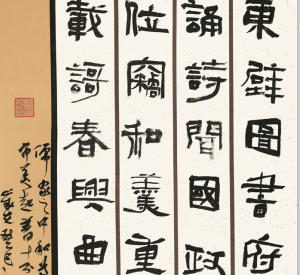 東壁圖書府
誦詩聞國政
位竊和羹重
載謌春興曲
儒家之中和